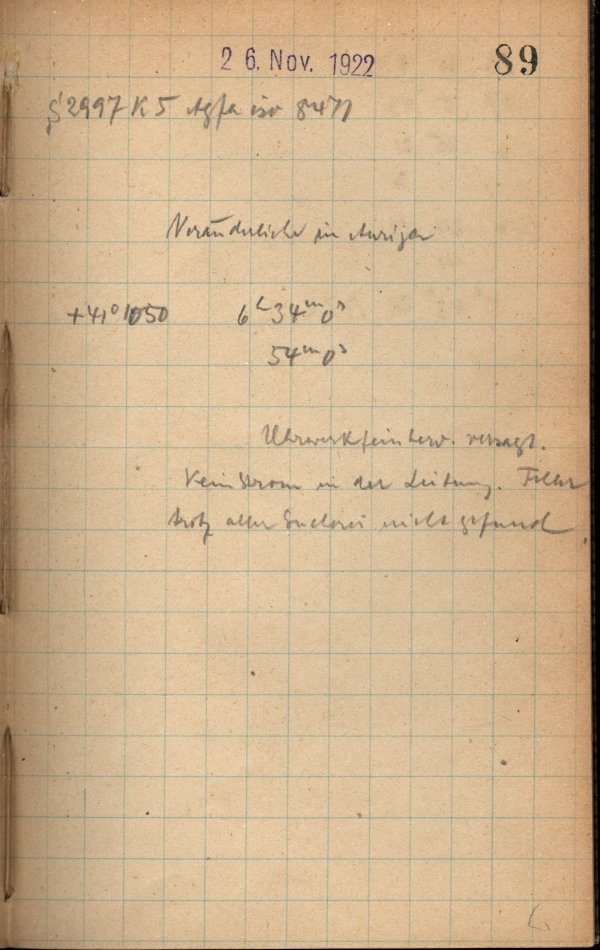 26. Nov. 1922
89
2997 K5 Agfa iso 8471
Veränderliche in Auriga
+41° 1050 6h 34m 0s
54m 0s
Uhrwerk feinbew. versagt.
Kein Strom in der Leitung. Fehler
trotz aller Sucherei nicht gefund